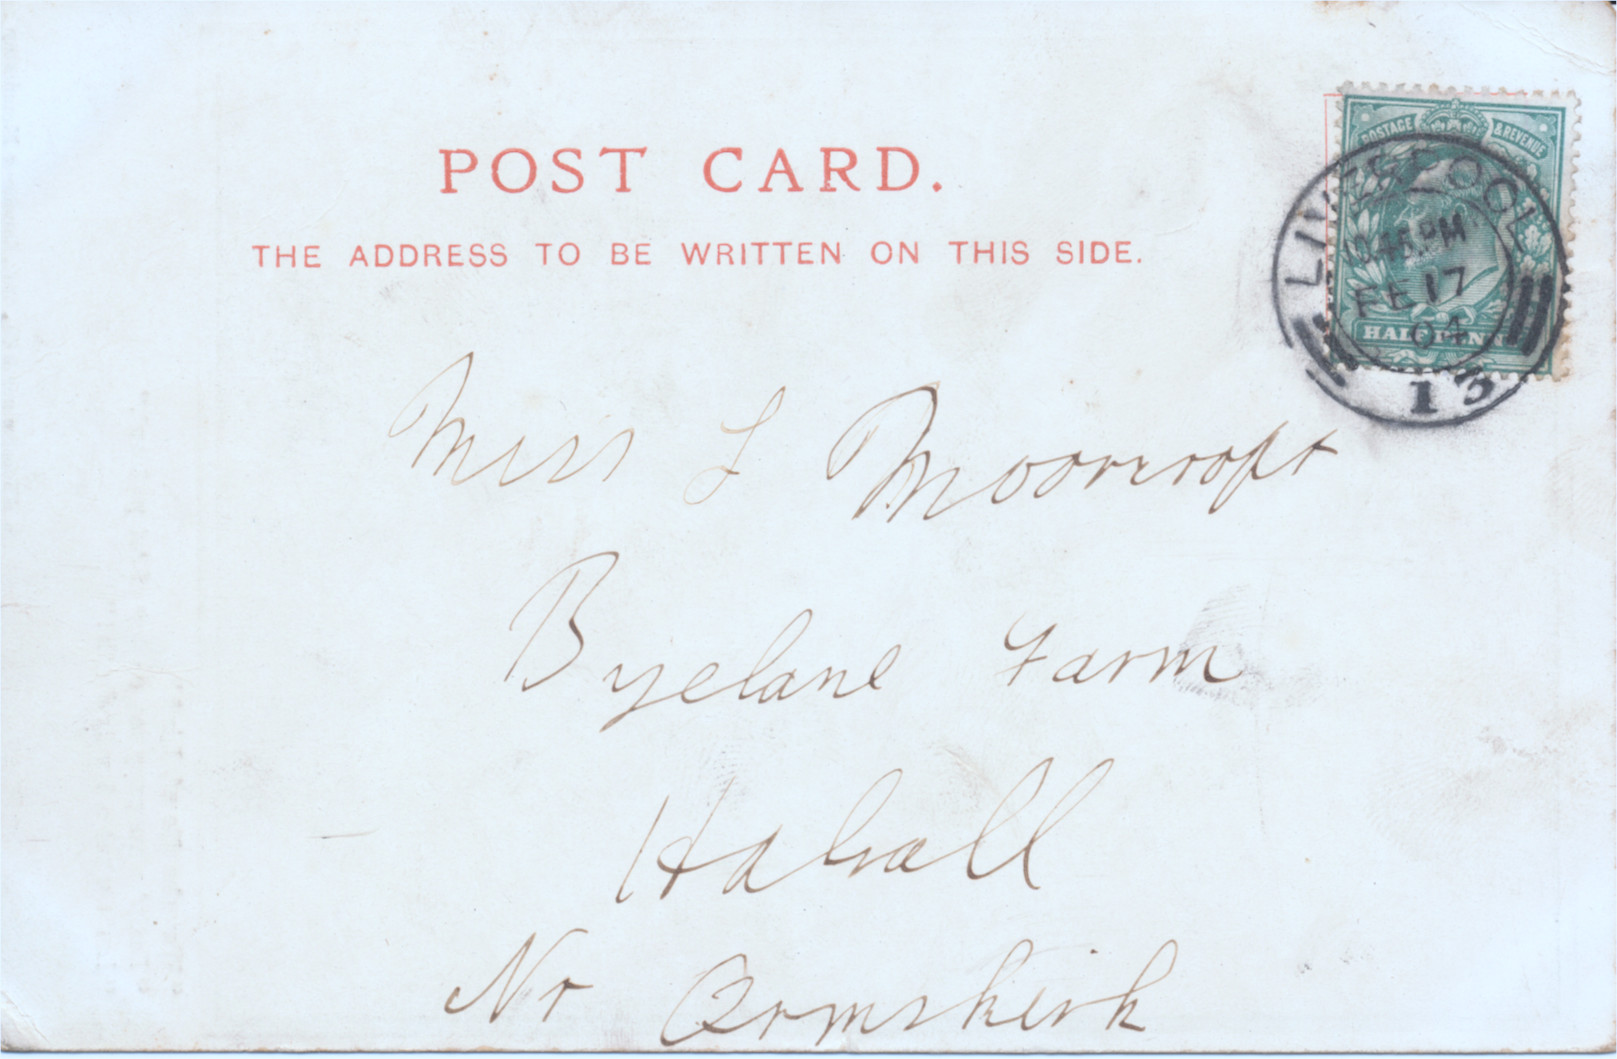 POST CARD.
THE ADDRESS TO BE WRITTEN ON THIS SIDE.
POSTAGE & REVENUE
LIVERPOOL
PM
FE 17
04
HALFPENNY
13
Miss L Moorcroft
Byelane Farm
Halsall
Nr Ormskirk